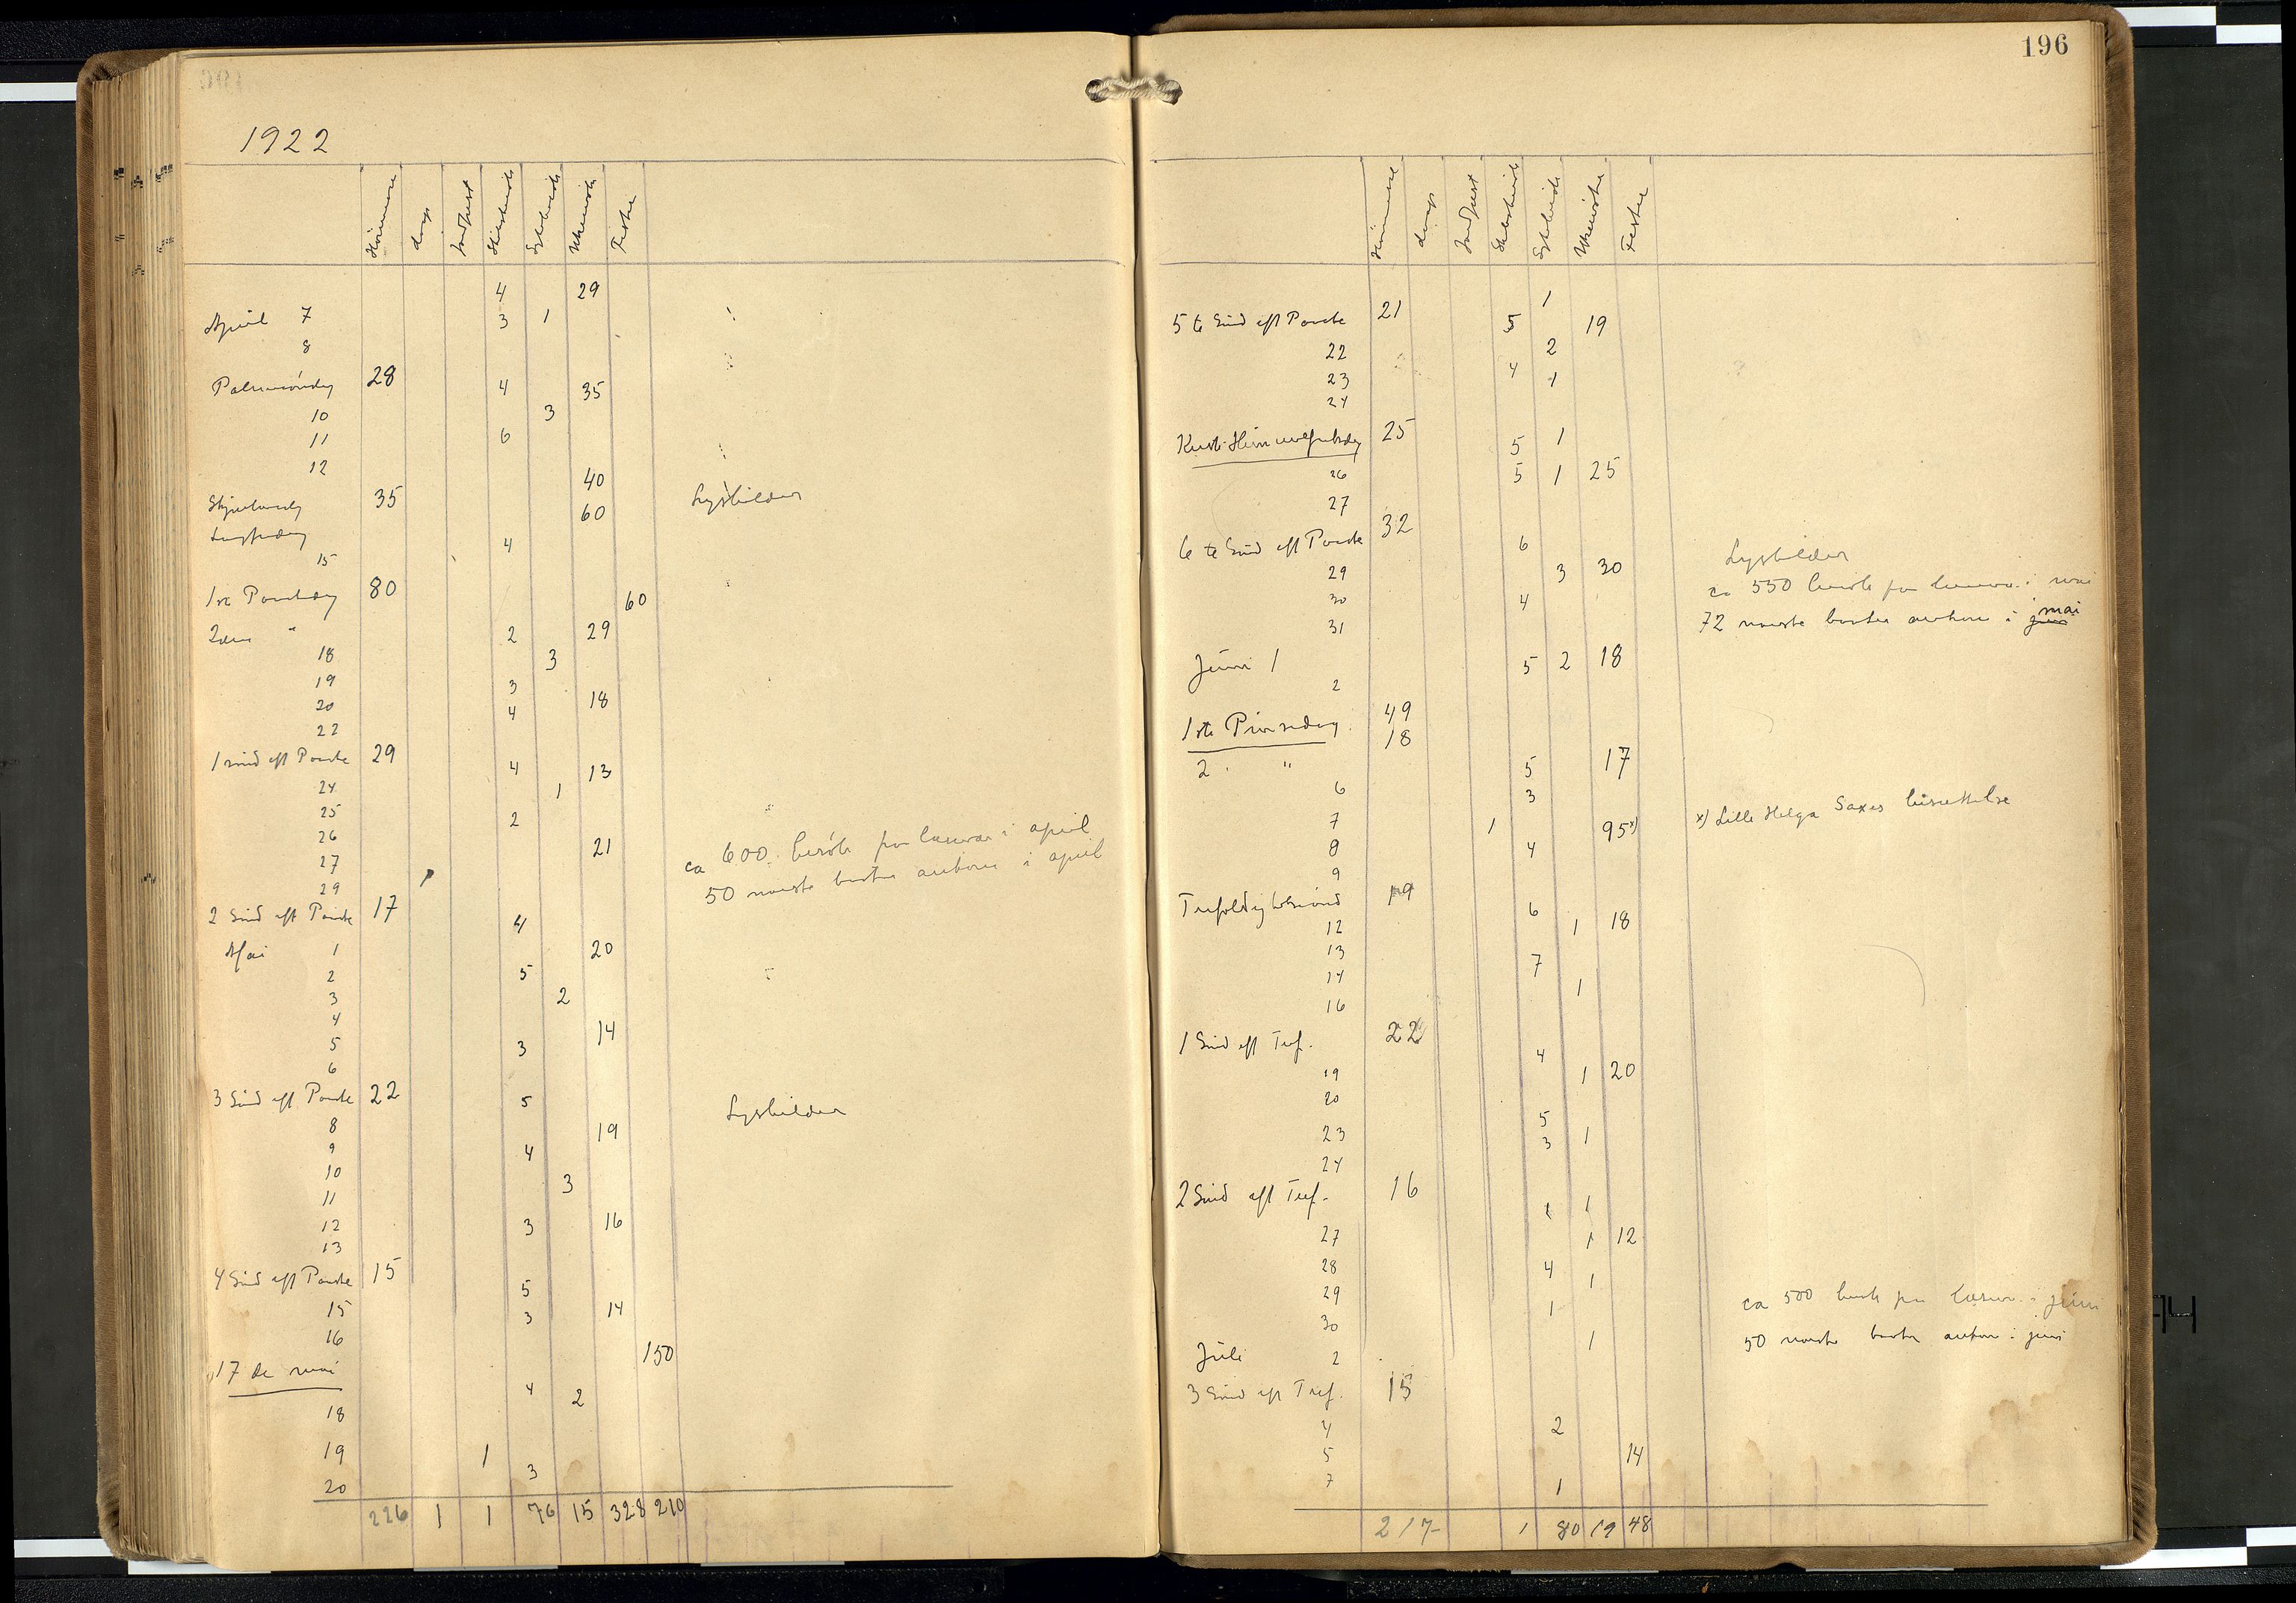 196
1922
Høimesse daap Jordfæst Skibsbesøk Sykebesøk Ukemøte Fester
4 29
April 7 3 1
8
Palmesøndag 28 4 35
10 3
11 6
12 40
Skjærtorsdag 35 60 Lysbilder
Langfredag
15 4
1ste Paaskedag 80 60
2den " 2 29
18 3
19 3
20 4 18
22
1 sønd eft Paaske 29 4 13
24 1
25 2
26 21
27
29 1
ca 600 besøk paa læsevær. i april
50 norske breve ankom i april
2 Sønd eft Paaske 17 4
Mai 1 20
2 5
3 2
4 14
5 3
6
3 Sønd eft Paaske 22 5 Lysbilder
8 19
9 4
10 3
11 16
12 3
13
4 Sønd eft Paaske 15 5
15 3 14
16
17 de mai 150
18 4 2
19 1
20 3
226 1 1 76 15 328 210
Høimesse daap Jordfæst Skibsbesøk Sykebesøk Ukemøte Fester
1
5te Sønd eft Paaske 21 5 19
22 2
23 4 1
24
Kristi Himmelfartsdag 25 5 1
26 5 1 25
27
6te Sønd eft Paaske 32 6 Lysbilder
29 3 30
30 4
31
ca 550 besøk paa læsevær. i mai
72 norske breve ankom i juni mai
Juni 1 5 2 18
2
1ste Pinsedag 49
2 " 18 5 17
6 3
7 1 95 x) x) Lille Helga Saxes bisættelse
8 4
9
Trefoldighetssønd 19 6
12 1 18
13 7
14 1
16
1 Sønd eft Tref. 22 4
19 1 20
20 5
23 3 1
24
2 Sønd eft Tref. 16 1 1
27 1 12
28 4 1
29 1
30
ca 500 besøk paa læsevær. i juni
50 norske breve ankom i juni
Juli 2 1
3 Sønd eft Tref. 15
4 2
5 14
7 1
217 1 80 19 48